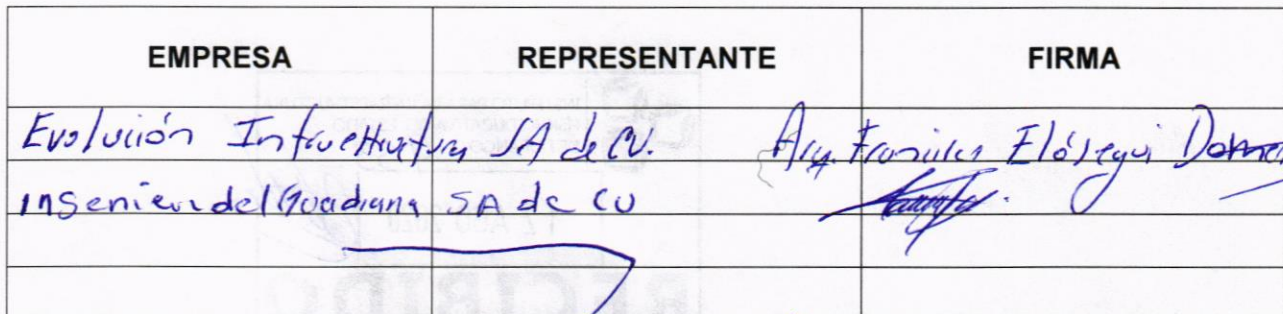 EMPRESA REPRESENTANTE FIRMA
Evolución Infraestructura SA de CV. Arq. Francisco Elósegui
Ingenieria del Guadiana SA de CV